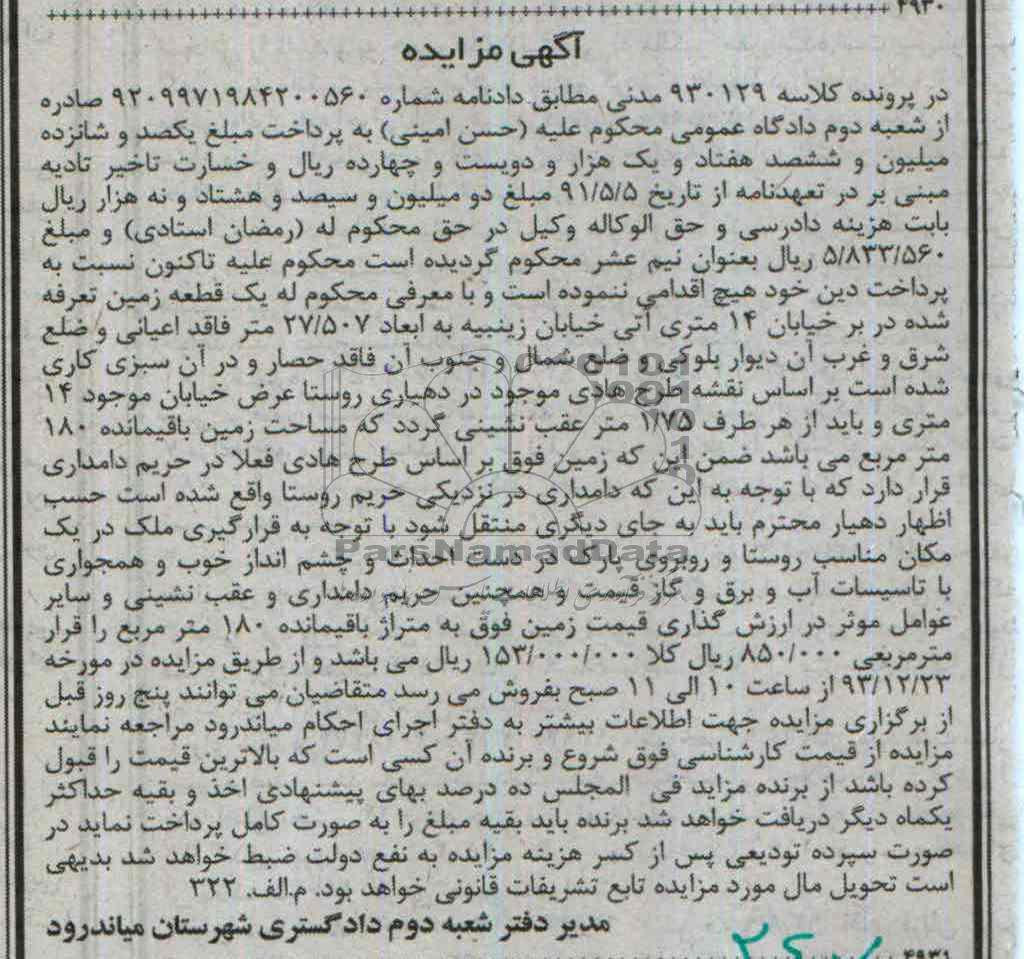 ۴۹۳۰
آگهی مزایده
در پرونده کلاسه ۹۳۰۱۲۹ مدنی مطابق دادنامه شماره ۹۲۰۹۹۷۱۹۸۴۲۰۰۵۶۰ صادره
از شعبه دوم دادگاه عمومی محکوم علیه (حسن امینی) به پرداخت مبلغ یکصد و شانزده
میلیون و ششصد هفتاد و یک هزار و دویست و چهارده ریال و خسارت تاخیر تادیه
مبنی بر در تعهدنامه از تاریخ ۹۱/۵/۵ مبلغ دو میلیون و سیصد و هشتاد و نه هزار ریال
بابت هزینه دادرسی و حق الوکاله وکیل در حق محکوم له (رمضان استادی) و مبلغ
۵/۸۳۳/۵۶۰ ریال بعنوان نیم عشر محکوم گردیده است محکوم علیه تاکنون نسبت به
پرداخت دین خود هیچ اقدامی ننموده است و با معرفی محکوم له یک قطعه زمین تعرفه
شده در بر خیابان ۱۴ متری آتی خیابان زینبیه به ابعاد ۲۷/۵۰۷ متر فاقد اعیانی و ضلع
شرق و غرب آن دیوار بلوکی و ضلع شمال و جنوب آن فاقد حصار و در آن سبزی کاری
شده است بر اساس نقشه طرح هادی موجود در دهیاری روستا عرض خیابان موجود ۱۴
متری و باید از هر طرف ۱/۷۵ متر عقب نشینی گردد که مساحت زمین باقیمانده ۱۸۰
متر مربع می باشد ضمن این که زمین فوق بر اساس طرح هادی فعلا در حریم دامداری
قرار دارد که با توجه به این که دامداری در نزدیکی حریم روستا واقع شده است حسب
اظهار دهیار محترم باید به جای دیگری منتقل شود با توجه به قرارگیری ملک در یک
مکان مناسب روستا و روبروی پارک در دست احداث و چشم انداز خوب و همجواری
با تاسیسات آب و برق و گاز قیمت و همچنین حریم دامداری و عقب نشینی و سایر
عوامل موثر در ارزش گذاری قیمت زمین فوق به متراژ باقیمانده ۱۸۰ متر مربع را قرار
مترمربعی ۸۵۰/۰۰۰ ریال کلا ۱۵۳/۰۰۰/۰۰۰ ریال می باشد و از طریق مزایده در مورخه
۹۳/۱۲/۲۳ از ساعت ۱۰ الی ۱۱ صبح بفروش می رسد متقاضیان می توانند پنج روز قبل
از برگزاری مزایده جهت اطلاعات بیشتر به دفتر اجرای احکام میاندرود مراجعه نمایند
مزایده از قیمت کارشناسی فوق شروع و برنده آن کسی است که بالاترین قیمت را قبول
کرده باشد از برنده مزاید فی المجلس ده درصد بهای پیشنهادی اخذ و بقیه حداکثر
یکماه دیگر دریافت خواهد شد برنده باید بقیه مبلغ را به صورت کامل پرداخت نماید در
صورت سپرده تودیعی پس از کسر هزینه مزایده به نفع دولت ضبط خواهد شد بدیهی
است تحویل مال مورد مزایده تابع تشریفات قانونی خواهد بود. م.الف. ۳۲۲
مدیر دفتر شعبه دوم دادگستری شهرستان میاندرود
۴۹۳۱
ParsNamadData